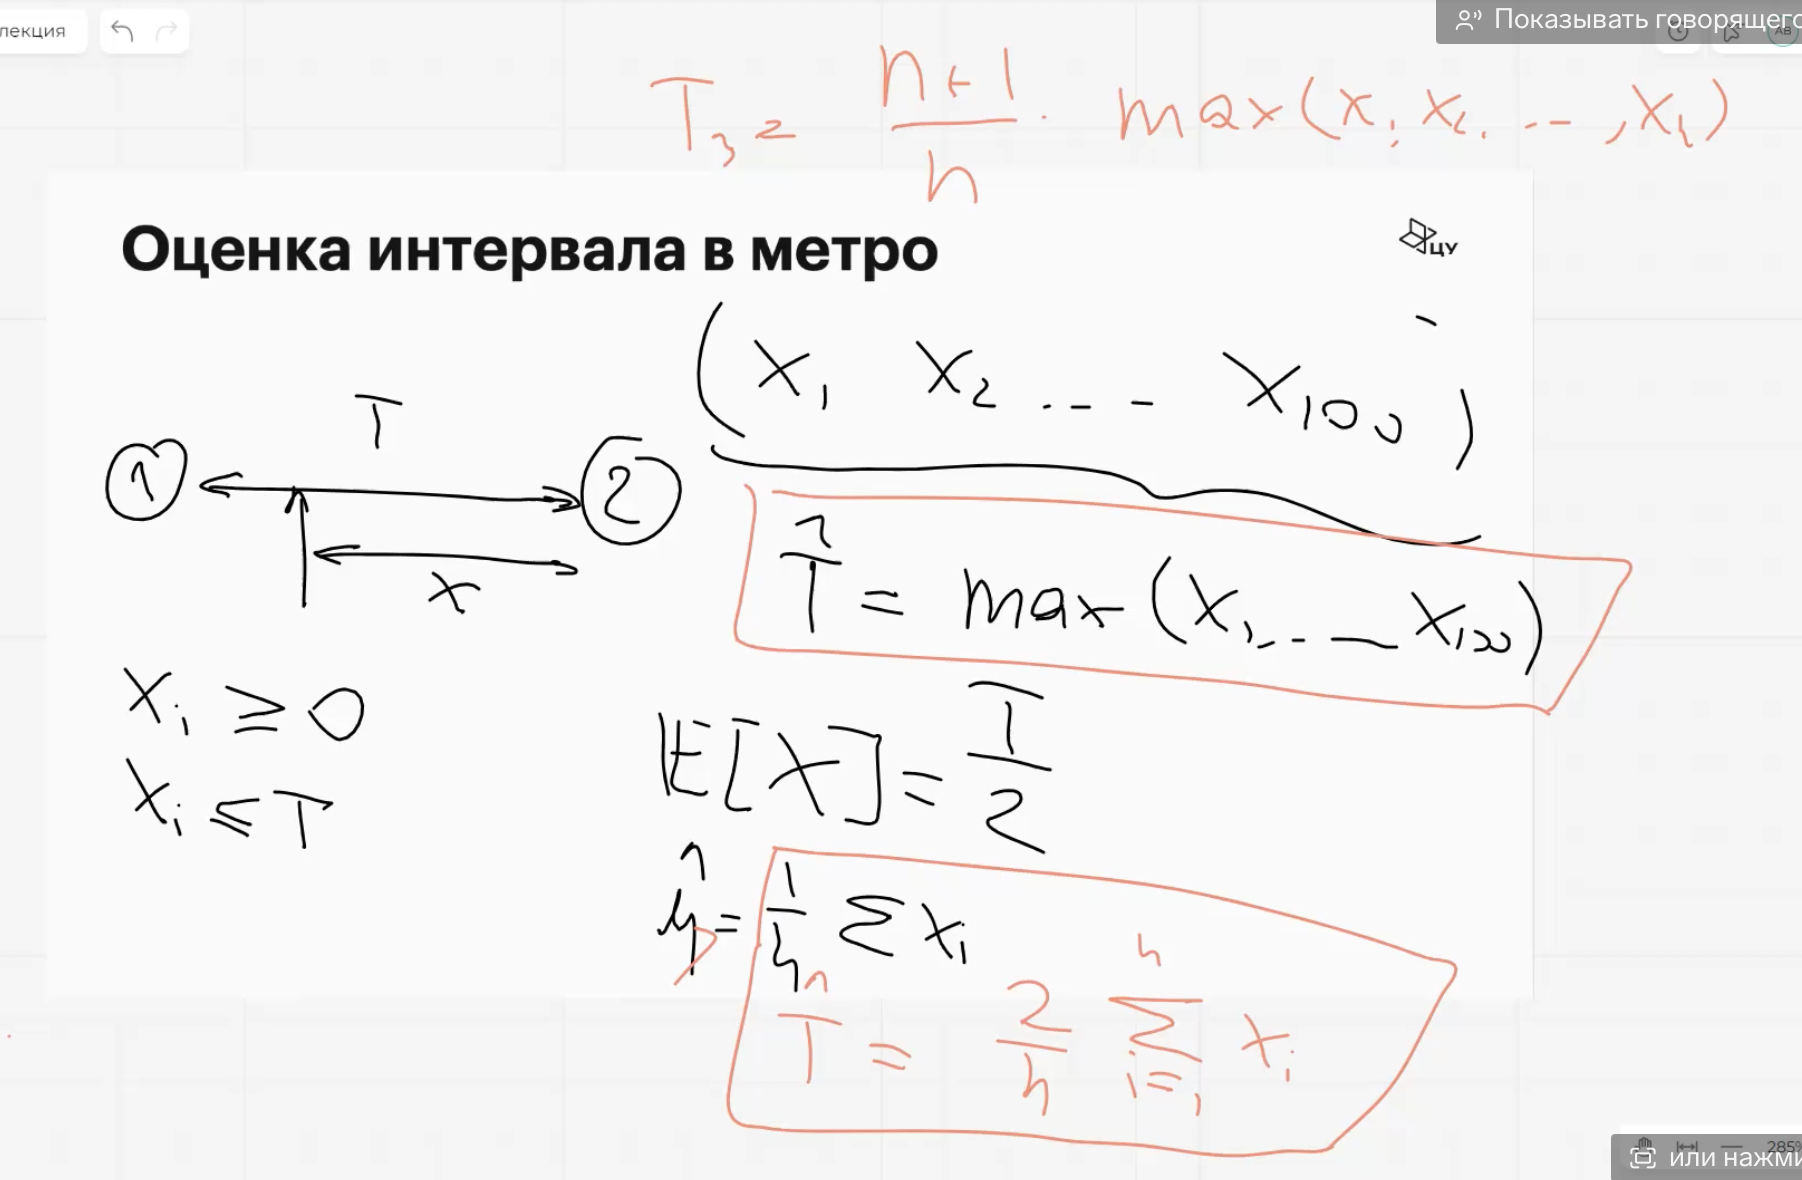 лекция
Показывать говорящего
АВ
T₃ = (n+1)/n · max(x₁ x₂, ..., x₁)
Оценка интервала в метро
ЦУ
(X₁ X₂ ... X₁₀₀)
T
1 2
x
T̂ = max(X₁, ... X₁₀₀)
Xᵢ ≥ 0
𝔼[X] = T/2
Xᵢ ≤ T
= 1/n Σ xᵢ
T̂ = 2/n Σⁿᵢ₌₁ xᵢ
285%
или нажми